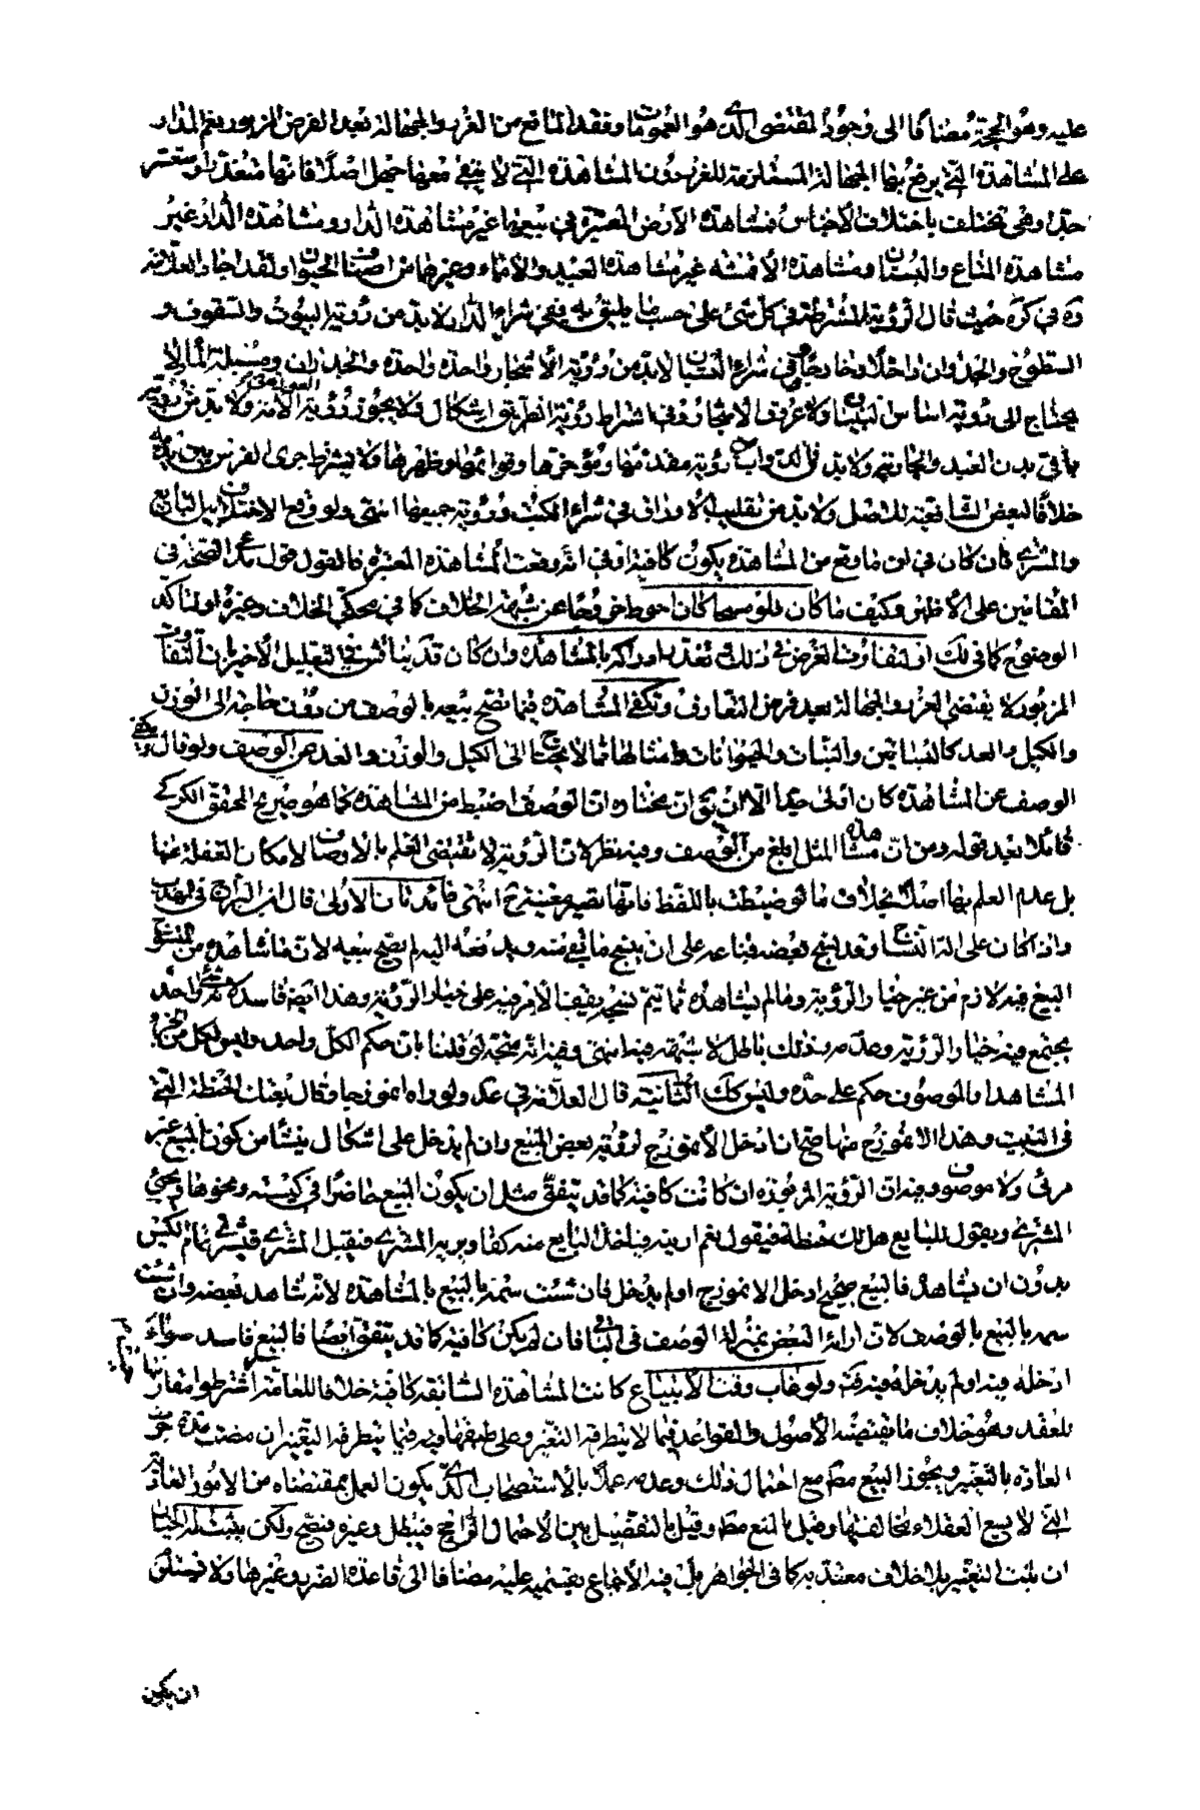 عليه وهو الحجة مضافا الى وجود المقتضى الذى هو العمومات وفقد المانع من الغرر والجهالة بعد الفرض المزبور نعم المدار
على المشاهدة التى يرفع بها الجهالة المستلزمة للغرر دون المشاهدة التى لا يبقى معها جهل اصلا فانها متعذرة او متعسرة
جدا وهى تختلف باختلاف الاجناس فمشاهدة الارض المعتبرة فى بيعها غير مشاهدة الدار ومشاهدة الدار غير
مشاهدة المتاع والبستان ومشاهدة الاقمشة غير مشاهدة العبيد والاماء وغيرهما من اصناف الحيوان ولقد اجاد العلامة
ره فى كره حيث قال الرؤية المشترطة فى كل شئ على حسب ما يليق به ففى شراء الدار لا بد من رؤية البيوت والسقوف و
السطوح والجدران داخلا وخارجا وفى شراء البستان لا بد من رؤية الاشجار واحدة واحدة والجدران ومسيلة الماء ولا
يحتاج الى رؤية اساس البنيان ولا عروق الاشجار وفى اشتراط رؤية الطريق اشكال ولا يجوز رؤية العورة فى الامة ولا بد من رؤية
باقى بدن العبيد والجارية ولا بد فى الدواب من رؤية مقدمها ومؤخرها وقوائمها وظهرها ولا يشترط جرى الفرس بين يديه
خلافا لبعض الشافعية للاصل ولا بد من تقليب الاوراق فى شراء الكتب ورؤية جميعها انتهى ولو وقع الاختلاف بين البايع
والمشترى فان كان فى ان ما وقع من المشاهدة يكون كافيا او فى انه وقعت المشاهدة المعتبرة فالقول قول مدعى الصحة فى
المقامين على الاظهر وكيف ما كان فلو مسحا كان احوط خروجا عن شبهة الخلاف كما فى محكى الخلاف وغيره او لتاكد
الوضوح كما فى لك او لتفاوت الغرض فى ذلك وتعذر ادراكه بالمشاهدة وان كان قد يناقش فى التعليل الاخير بان التفاوت
المزبور لا يقتضى الغرر والجهالة بعد فرض التعارف وتكفى المشاهدة فيما تصح بيعه بالوصف من دون حاجة الى الوزن
والكيل والعد كالبساتين والنبات والحيوانات وامثالها مما لا يحتاج الى الكيل والوزن والعد عن الوصف ولو قال ويكفى
الوصف عن المشاهدة كان اولى جيدا الا ان يق ان مختاره ان الوصف اضبط من المشاهدة كما هو صريح المحقق الكركى
قائلا بعد قوله ومن ان مشاهدة المثل ابلغ من الوصف وفيه نظر لان الرؤية لا تقتضى العلم بالاوصاف لامكان الغفلة عنها
بل عدم العلم بها اصلا بخلاف ما لو ضبطت باللفظ فانها تصير معينة ح انتهى فائدتان الاولى قال ابن البراج فى المهذب
واذا كان على الة النساج ثوب قد نسج بعضه فباعه على ان ينسج ما بقى منه ويدفعه اليه لم يصح بيعه لان ما شاهده من المنسوج
البيع فيه لازم من غير خيار الرؤية وما لم يشاهده ثم يتم نسجه يقف الامر فيه على خيار الرؤية وهذا ايضا فاسد لانه شئ واحد
يجتمع فيه خيار الرؤية وعدمه وذلك باطل لا شبهة فيه انتهى وفيه انه متجه لو قلنا بان حكم الكل واحد وليس لكل من الجزء
المشاهد والموصوف حكم على حده وليس كك الثانية قال العلامة فى عد ولو راه انموذجا وقال بعتك الحنطة التى
فى البيت وهذا الانموذج منها صح ان ادخل الانموذج لرؤية بعض المبيع وان لم يدخل على اشكال ينشا من كون المبيع غير
مرئى ولا موصوف وفيه ان الرؤية المزبورة ان كانت كافية كما قد يتفق مثل ان يكون المبيع حاضرا فى كيسه ونحوها ويجئ
المشترى ويقول للبايع هل لك حنطة فيقول نعم اريد فياخذ البايع منه كفا ويريه المشترى فيقبل المشترى فيشترى تمام الكيس
بدون ان يشاهد فالبيع صحيح ادخل الانموذج او لم يدخل فان شئت سمه بالبيع بالمشاهدة لانه شاهد بعضه وان شئت
سمه بالبيع بالوصف لان اراءة البعض بمنزلة الوصف فى الباقى فان لم يكن كافية كما قد يتفق ايضا فالبيع فاسد سواء
ادخله فيه او لم يدخله فيه ولو غاب وقت الابتياع كانت المشاهدة السابقة كافية خلافا للعامة اشترطوا مقارنتها
للعقد وهو خلاف ما يقتضيه الاصول والقواعد فيما لا يتطرق التغير وعلى طبقها فيه فيما يتطرق التغير ان مضت مدة جرت
العادة بالتغير ويجوز البيع مطلقا مع احتمال ذلك وعدمه عملا بالاستصحاب الذى يكون العمل بمقتضاه من الامور العادية
التى لا يسع العقلاء مخالفتها وقيل بالمنع مطلقا وقيل بالتفصيل بين الاحتمال الراجح فيبطل وغيره فيصح ولكن يثبت له الخيار
ان ثبت التغيير بلا خلاف معتد به كما فى الجواهر بل فيه الاجماع بقسميه عليه مضافا الى قاعدة الضرر وغيرها ولا فرق بين
ان يكون